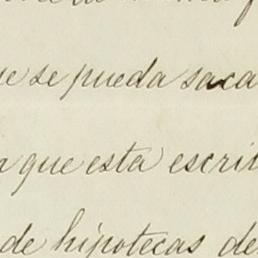 se pueda saca
que esta escrit
de hipotecas de